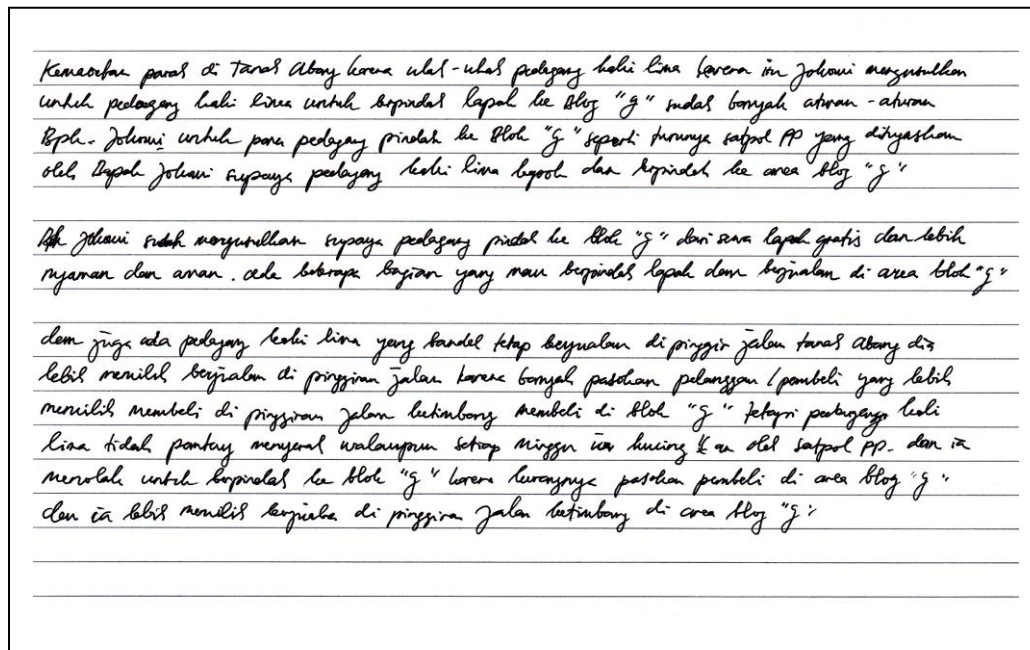 Kemacetan parah di Tanah Abang karena ulah-ulah pedagang kaki lima karena itu Jokowi mengusulkan
untuk pedagang kaki lima untuk berpindah lapak ke Blog "g" sudah banyak aturan-aturan
Bpk. Jokowi untuk para pedagang pindah ke Blok "g" seperti turunnya satpol PP yang ditugaskan
oleh Bapak Jokowi supaya pedagang kaki lima kapok dan berpindah ke area blog "g"
Bpk Jokowi sudah mengusulkan supaya pedagang pindah ke blok "g" dari sewa lapak gratis dan lebih
nyaman dan aman. ada beberapa bagian yang mau berpindah lapak dan berjualan di area blok "g"
dan juga ada pedagang kaki lima yang bandel tetap berjualan di pinggir jalan tanah Abang dia
lebih memilih berjualan di pinggiran jalan karena banyak pasokan pelanggan / pembeli yang lebih
memilih membeli di pinggiran jalan ketimbang membeli di blok "g" tetapi pedagang kaki
lima tidak pantang menyerah walaupun setiap minggu kucing an oleh satpol PP. dan ia
menolak untuk berpindah ke blok "g" karena kurangnya pasokan pembeli di area blog "g"
dan ia lebih memilih berjualan di pinggiran jalan ketimbang di area blog "g"